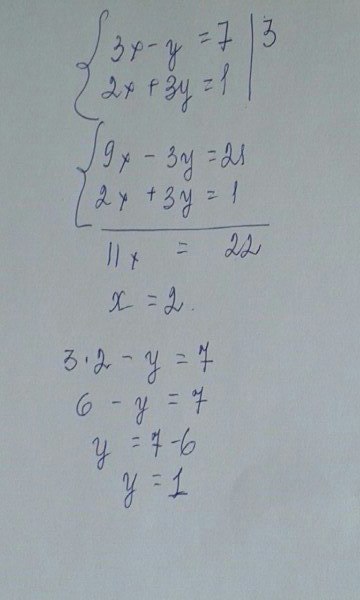 3x - y = 7 | 3
2x + 3y = 1
9x - 3y = 21
2x + 3y = 1
11x = 22
x = 2.
3·2 - y = 7
6 - y = 7
y = 7-6
y = 1